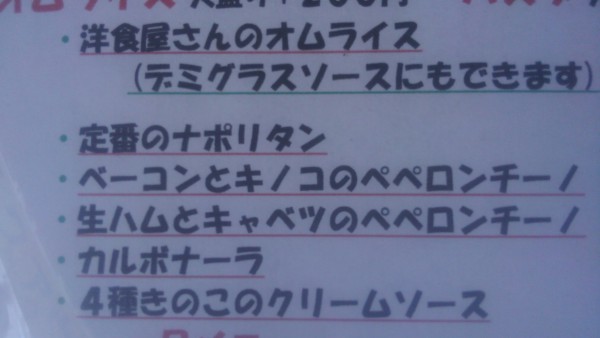 オムライス
・洋食屋さんのオムライス
(デミグラスソースにもできます)
・定番のナポリタン
・ベーコンとキノコのペペロンチーノ
・生ハムとキャベツのペペロンチーノ
・カルボナーラ
・4種きのこのクリームソース